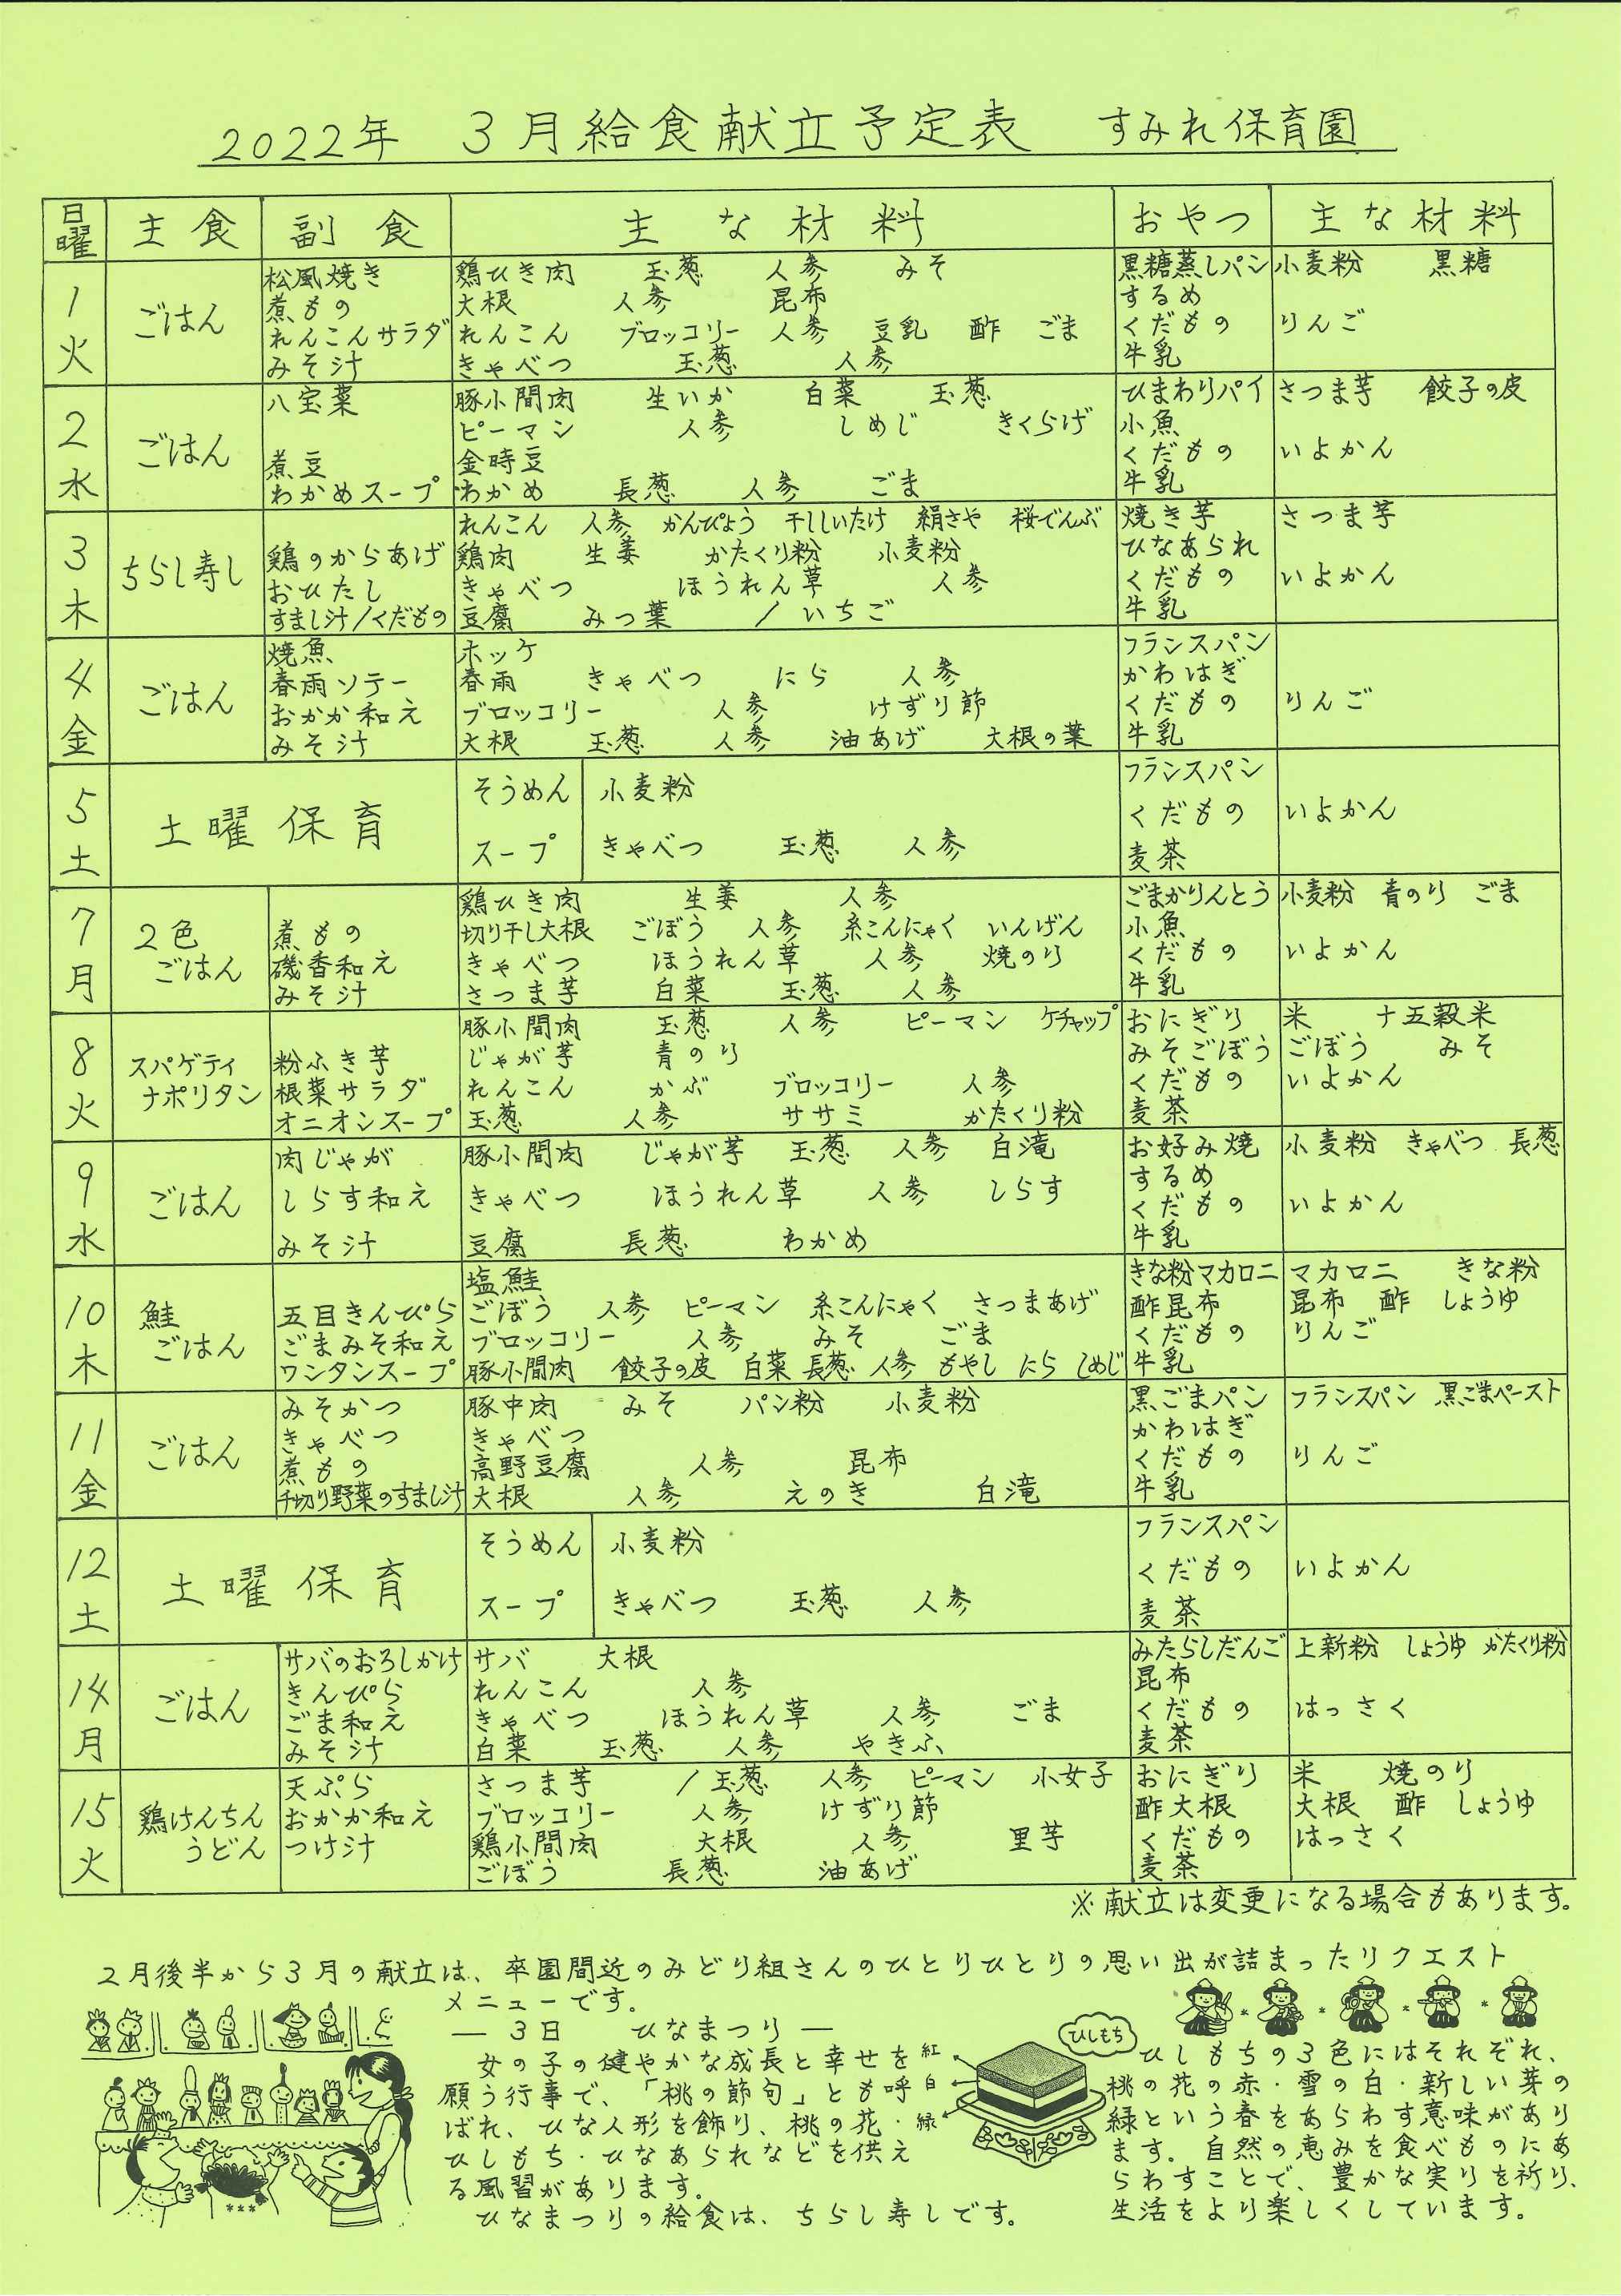 2022年 3月給食献立予定表 すみれ保育園
日曜 主食 副食 主な材料 おやつ 主な材料
1 火 ごはん
松風焼き 鶏ひき肉 玉葱 人参 みそ 黒糖蒸しパン 小麦粉 黒糖
煮もの 大根 人参 昆布 するめ
れんこんサラダ れんこん ブロッコリー 人参 豆乳 酢 ごま くだもの りんご
みそ汁 きゃべつ 玉葱 人参 牛乳
2 水 ごはん
八宝菜 豚小間肉 生いか 白菜 玉葱 ひまわりパイ さつま芋 餃子の皮
ピーマン 人参 しめじ きくらげ 小魚
煮豆 金時豆 くだもの いよかん
わかめスープ わかめ 長葱 人参 ごま 牛乳
3 木 ちらし寿し
れんこん 人参 かんぴょう 干ししいたけ 絹さや 桜でんぶ 焼き芋 さつま芋
鶏のからあげ 鶏肉 生姜 かたくり粉 小麦粉 ひなあられ
おひたし きゃべつ ほうれん草 人参 くだもの いよかん
すまし汁/くだもの 豆腐 みつ葉 / いちご 牛乳
4 金 ごはん
焼魚 ホッケ フランスパン
春雨ソテー 春雨 きゃべつ にら 人参 かわはぎ
おかか和え ブロッコリー 人参 けずり節 くだもの りんご
みそ汁 大根 玉葱 人参 油あげ 大根の葉 牛乳
5 土 土曜保育
そうめん 小麦粉 フランスパン
くだもの いよかん
スープ きゃべつ 玉葱 人参 麦茶
7 月 2色ごはん
鶏ひき肉 生姜 人参 ごまかりんとう 小麦粉 青のり ごま
煮もの 切り干し大根 ごぼう 人参 糸こんにゃく いんげん 小魚
磯香和え きゃべつ ほうれん草 人参 焼のり くだもの いよかん
みそ汁 さつま芋 白菜 玉葱 人参 牛乳
8 火 スパゲティナポリタン
豚小間肉 玉葱 人参 ピーマン ケチャップ おにぎり 米 十五穀米
粉ふき芋 じゃが芋 青のり みそごぼう ごぼう みそ
根菜サラダ れんこん かぶ ブロッコリー 人参 くだもの いよかん
オニオンスープ 玉葱 人参 ササミ かたくり粉 麦茶
9 水 ごはん
肉じゃが 豚小間肉 じゃが芋 玉葱 人参 白滝 お好み焼 小麦粉 きゃべつ 長葱
するめ
しらす和え きゃべつ ほうれん草 人参 しらす くだもの いよかん
みそ汁 豆腐 長葱 わかめ 牛乳
10 木 鮭ごはん
塩鮭 きな粉マカロニ マカロニ きな粉
五目きんぴら ごぼう 人参 ピーマン 糸こんにゃく さつまあげ 酢昆布 昆布 酢 しょうゆ
ごまみそ和え ブロッコリー 人参 みそ ごま くだもの りんご
ワンタンスープ 豚小間肉 餃子の皮 白菜 長葱 人参 もやし にら しめじ 牛乳
11 金 ごはん
みそかつ 豚中肉 みそ パン粉 小麦粉 黒ごまパン フランスパン 黒ごまペースト
きゃべつ きゃべつ かわはぎ
煮もの 高野豆腐 人参 昆布 くだもの りんご
千切り野菜のすまし汁 大根 人参 えのき 白滝 牛乳
12 土 土曜保育
そうめん 小麦粉 フランスパン
くだもの いよかん
スープ きゃべつ 玉葱 人参 麦茶
14 月 ごはん
サバのおろしかけ サバ 大根 みたらしだんご 上新粉 しょうゆ かたくり粉
きんぴら れんこん 人参 昆布
ごま和え きゃべつ ほうれん草 人参 ごま くだもの はっさく
みそ汁 白菜 玉葱 人参 やきふ 麦茶
15 火 鶏けんちんうどん
天ぷら さつま芋 / 玉葱 人参 ピーマン 小女子 おにぎり 米 焼のり
おかか和え ブロッコリー 人参 けずり節 酢大根 大根 酢 しょうゆ
つけ汁 鶏小間肉 大根 人参 里芋 くだもの はっさく
ごぼう 長葱 油あげ 麦茶
※献立は変更になる場合もあります。
2月後半から3月の献立は、卒園間近のみどり組さんのひとりひとりの思い出が詰まったリクエスト
メニューです。
― 3日 ひなまつり ―
女の子の健やかな成長と幸せを
願う行事で、「桃の節句」とも呼
ばれ、ひな人形を飾り、桃の花・
ひしもち・ひなあられなどを供え
る風習があります。
ひなまつりの給食は、ちらし寿しです。
紅
白
緑
ひしもち
ひしもちの3色にはそれぞれ、
桃の花の赤・雪の白・新しい芽の
緑という春をあらわす意味があり
ます。自然の恵みを食べものにあ
らわすことで、豊かな実りを祈り、
生活をより楽しくしています。